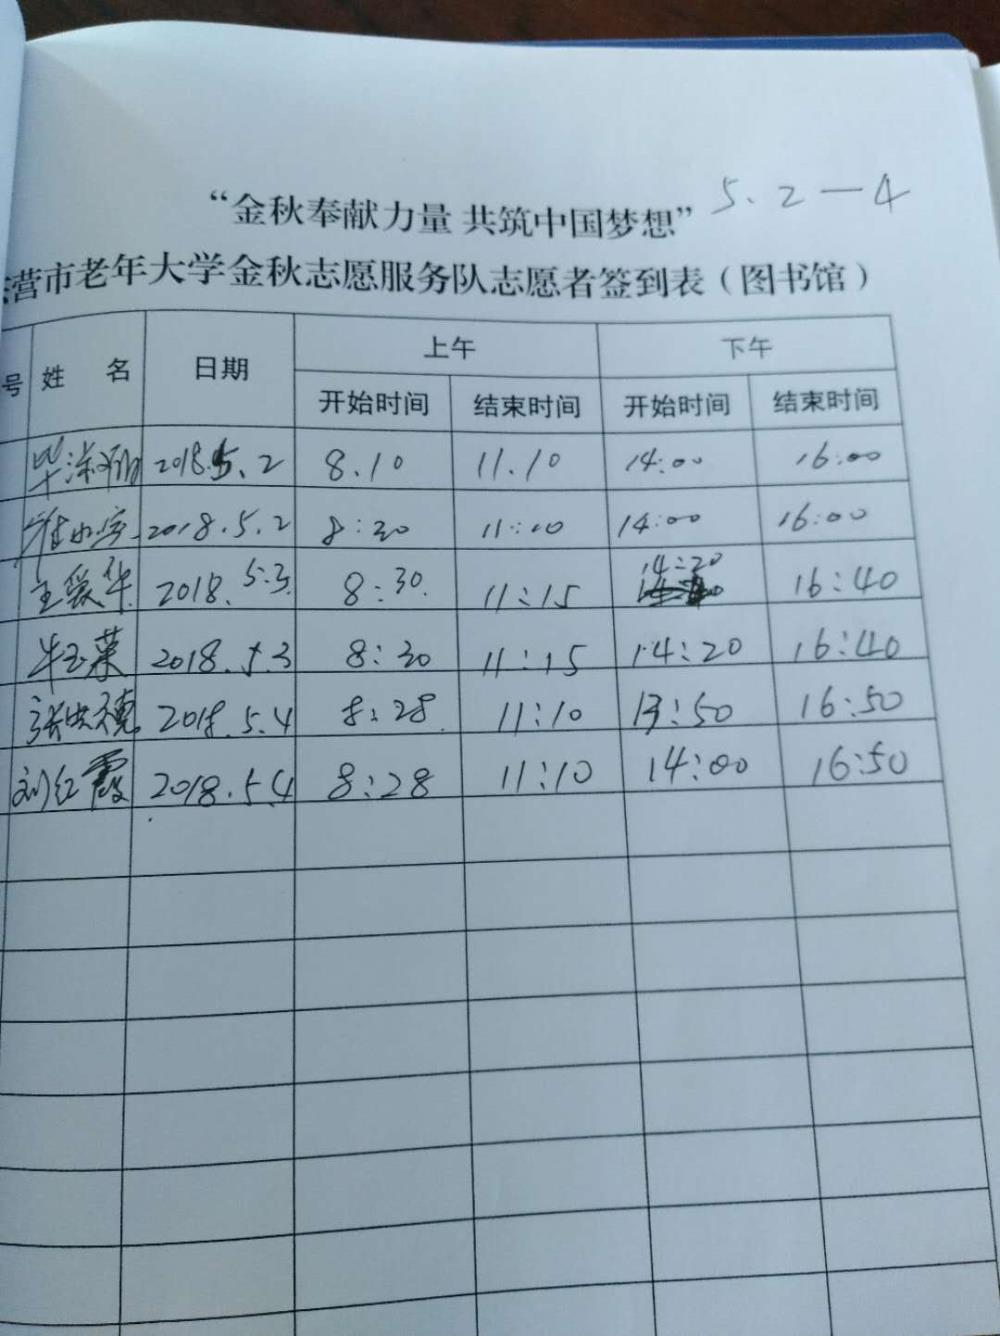 “金秋奉献力量 共筑中国梦想” 5.2—4
营市老年大学金秋志愿服务队志愿者签到表（图书馆）
号 姓 名 日期 上午 下午
开始时间 结束时间 开始时间 结束时间
毕淑丽 2018.5.2 8.10 11.10 14:00 16:00
2018.5.2 8:30 11:10 14:00 16:00
王爱华 2018.5.3 8:30 11:15 14:20 16:40
牛玉荣 2018.5.3 8:30 11:15 14:20 16:40
张洪德 2018.5.4 8:28 11:10 13:50 16:50
刘红霞 2018.5.4 8:28 11:10 14:00 16:50